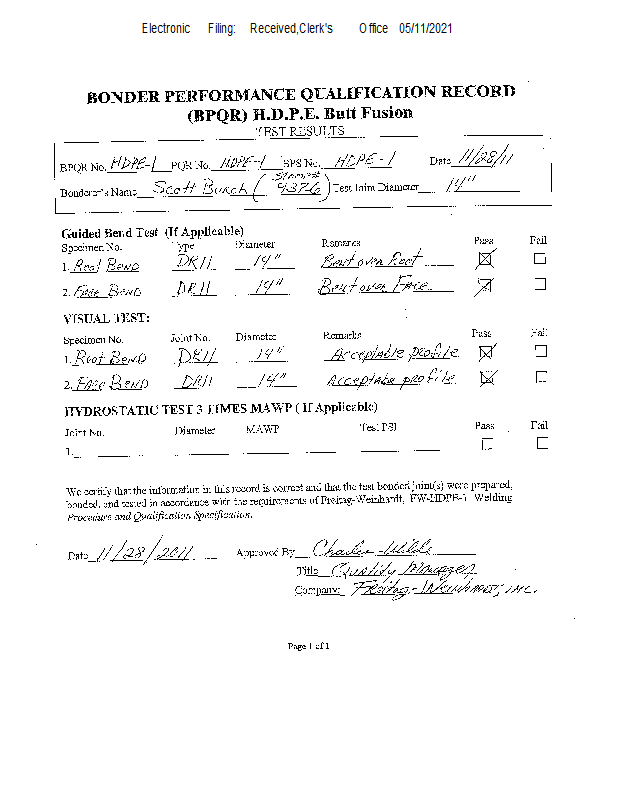 Electronic Filing: Received, Clerk's Office 05/11/2021
BONDER PERFORMANCE QUALIFICATION RECORD
(BPQR) H.D.P.E. Butt Fusion
TEST RESULTS
BPQR No. HDPE-1 PQR No. HDPE-1 BPS No. HDPE-1 Date 11/28/11
Bonderer's Name Scott Burch (Stamp# 9376) Test Joint Diameter 14"
Guided Bend Test (If Applicable)
Specimen No. Type Diameter Remarks Pass Fail
1. Root Bend DR11 14" Bent over Root ☒ ☐
2. Face Bend DR11 14" Bent over Face ☒ ☐
VISUAL TEST:
Specimen No. Joint No. Diameter Remarks Pass Fail
1. Root Bend DR11 14" Acceptable profile ☒ ☐
2. Face Bend DR11 14" Acceptable profile ☒ ☐
HYDROSTATIC TEST 3 TIMES MAWP ( If Applicable)
Joint No. Diameter MAWP Test PSI Pass Fail
1. ☐ ☐
We certify that the information in this record is correct and that the test bonded joint(s) were prepared,
bonded, and tested in accordance with the requirements of Freitag-Weinhardt, FW-HDPE-1 Welding
Procedure and Qualification Specification.
Date 11/28/2011 Approved By Charles
Title Quality Manager
Company: Freitag-Weinhardt, INC.
Page 1 of 1